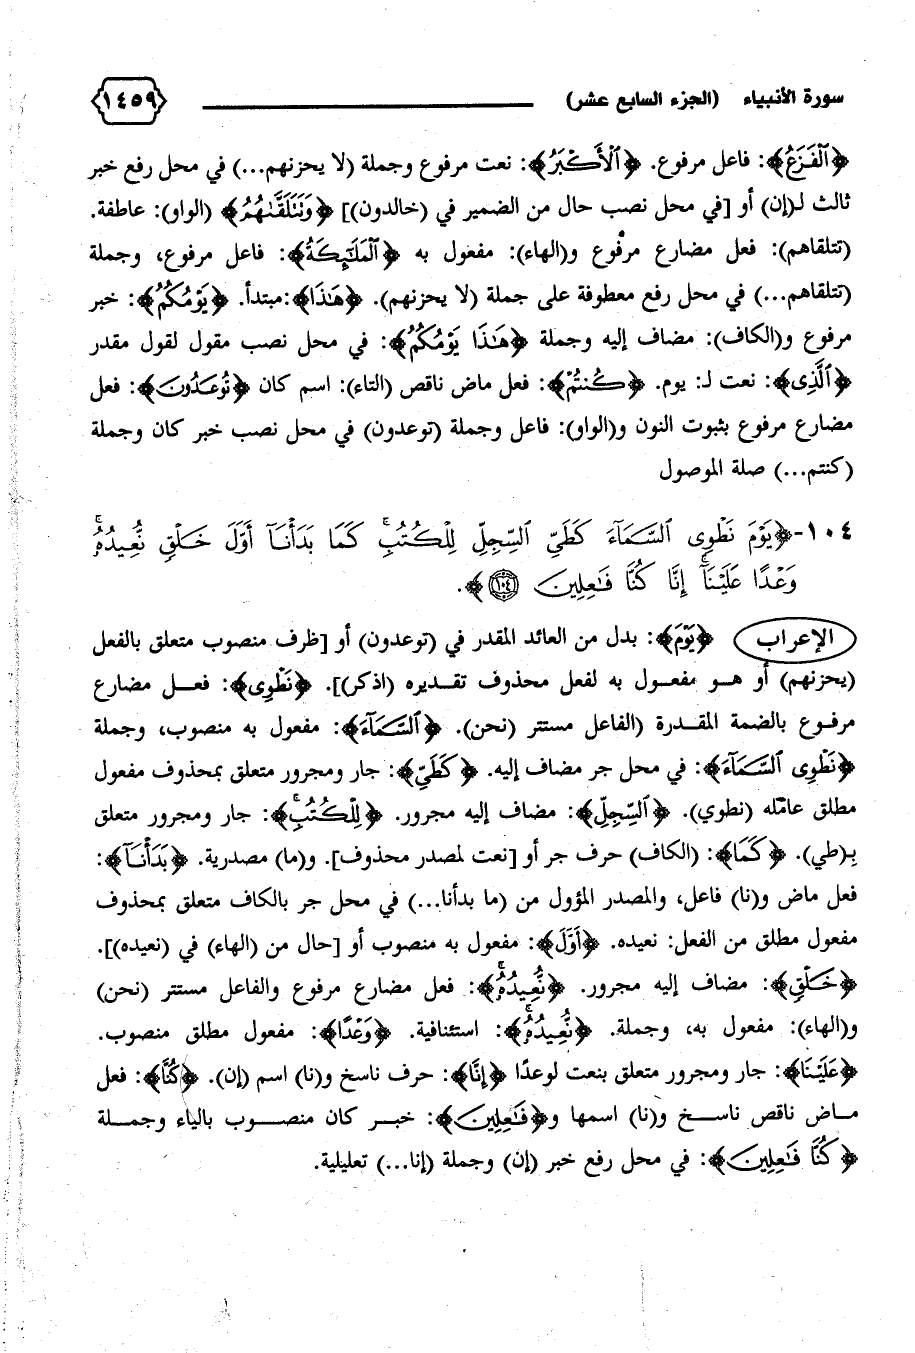 سورة الأنبياء (الجزء السابع عشر) ١٤٥٩
﴿ٱلْفَزَعُ﴾: فاعل مرفوع. ﴿ٱلْأَكْبَرُ﴾: نعت مرفوع وجملة (لا يحزنهم...) في محل رفع خبر
ثالث لـ(إن) أو [في محل نصب حال من الضمير في (خالدون)] ﴿وَتَتَلَقَّىٰهُمُ﴾ (الواو): عاطفة.
(تتلقاهم): فعل مضارع مرفوع و(الهاء): مفعول به ﴿ٱلْمَلَٰٓئِكَةُ﴾: فاعل مرفوع، وجملة
(تتلقاهم...) في محل رفع معطوفة على جملة (لا يحزنهم). ﴿هَٰذَا﴾:مبتدأ. ﴿يَوْمُكُمُ﴾: خبر
مرفوع و(الكاف): مضاف إليه وجملة ﴿هَٰذَا يَوْمُكُمُ﴾: في محل نصب مقول لقول مقدر
﴿ٱلَّذِى﴾: نعت لـ: يوم. ﴿كُنتُمْ﴾: فعل ماض ناقص (التاء): اسم كان ﴿تُوعَدُونَ﴾: فعل
مضارع مرفوع بثبوت النون و(الواو): فاعل وجملة (توعدون) في محل نصب خبر كان وجملة
(كنتم...) صلة الموصول
١٠٤-﴿يَوْمَ نَطْوِى ٱلسَّمَآءَ كَطَىِّ ٱلسِّجِلِّ لِلْكُتُبِ ۚ كَمَا بَدَأْنَآ أَوَّلَ خَلْقٍ نُّعِيدُهُۥ ۚ
وَعْدًا عَلَيْنَآ ۚ إِنَّا كُنَّا فَٰعِلِينَ ١٠٤﴾.
الإعراب ﴿يَوْمَ﴾: بدل من العائد المقدر في (توعدون) أو [ظرف منصوب متعلق بالفعل
(يحزنهم) أو هو مفعول به لفعل محذوف تقديره (اذكر)]. ﴿نَطْوِى﴾: فعل مضارع
مرفوع بالضمة المقدرة (الفاعل مستتر (نحن). ﴿ٱلسَّمَآءَ﴾: مفعول به منصوب، وجملة
﴿نَطْوِى ٱلسَّمَآءَ﴾: في محل جر مضاف إليه. ﴿كَطَىِّ﴾: جار ومجرور متعلق بمحذوف مفعول
مطلق عامله (نطوي). ﴿ٱلسِّجِلِّ﴾: مضاف إليه مجرور. ﴿لِلْكُتُبِ ۚ﴾: جار ومجرور متعلق
بـ(طي). ﴿كَمَا﴾: (الكاف) حرف جر أو [نعت لمصدر محذوف]. و(ما) مصدرية. ﴿بَدَأْنَآ﴾:
فعل ماض و(نا) فاعل، والمصدر المؤول من (ما بدأنا...) في محل جر بالكاف متعلق بمحذوف
مفعول مطلق من الفعل: نعيده. ﴿أَوَّلَ﴾: مفعول به منصوب أو [حال من (الهاء) في (نعيده)].
﴿خَلْقٍ﴾: مضاف إليه مجرور. ﴿نُّعِيدُهُۥ ۚ﴾: فعل مضارع مرفوع والفاعل مستتر (نحن)
و(الهاء): مفعول به، وجملة. ﴿نُّعِيدُهُۥ ۚ﴾: استئنافية. ﴿وَعْدًا﴾: مفعول مطلق منصوب.
﴿عَلَيْنَا﴾: جار ومجرور متعلق بنعت لوعدًا ﴿إِنَّا﴾: حرف ناسخ و(نا) اسم (إن). ﴿كُنَّا﴾: فعل
ماض ناقص ناسخ و(نا) اسمها و﴿فَٰعِلِينَ﴾: خبر كان منصوب بالياء وجملة
﴿كُنَّا فَٰعِلِينَ﴾: في محل رفع خبر (إن) وجملة (إنا...) تعليلية.